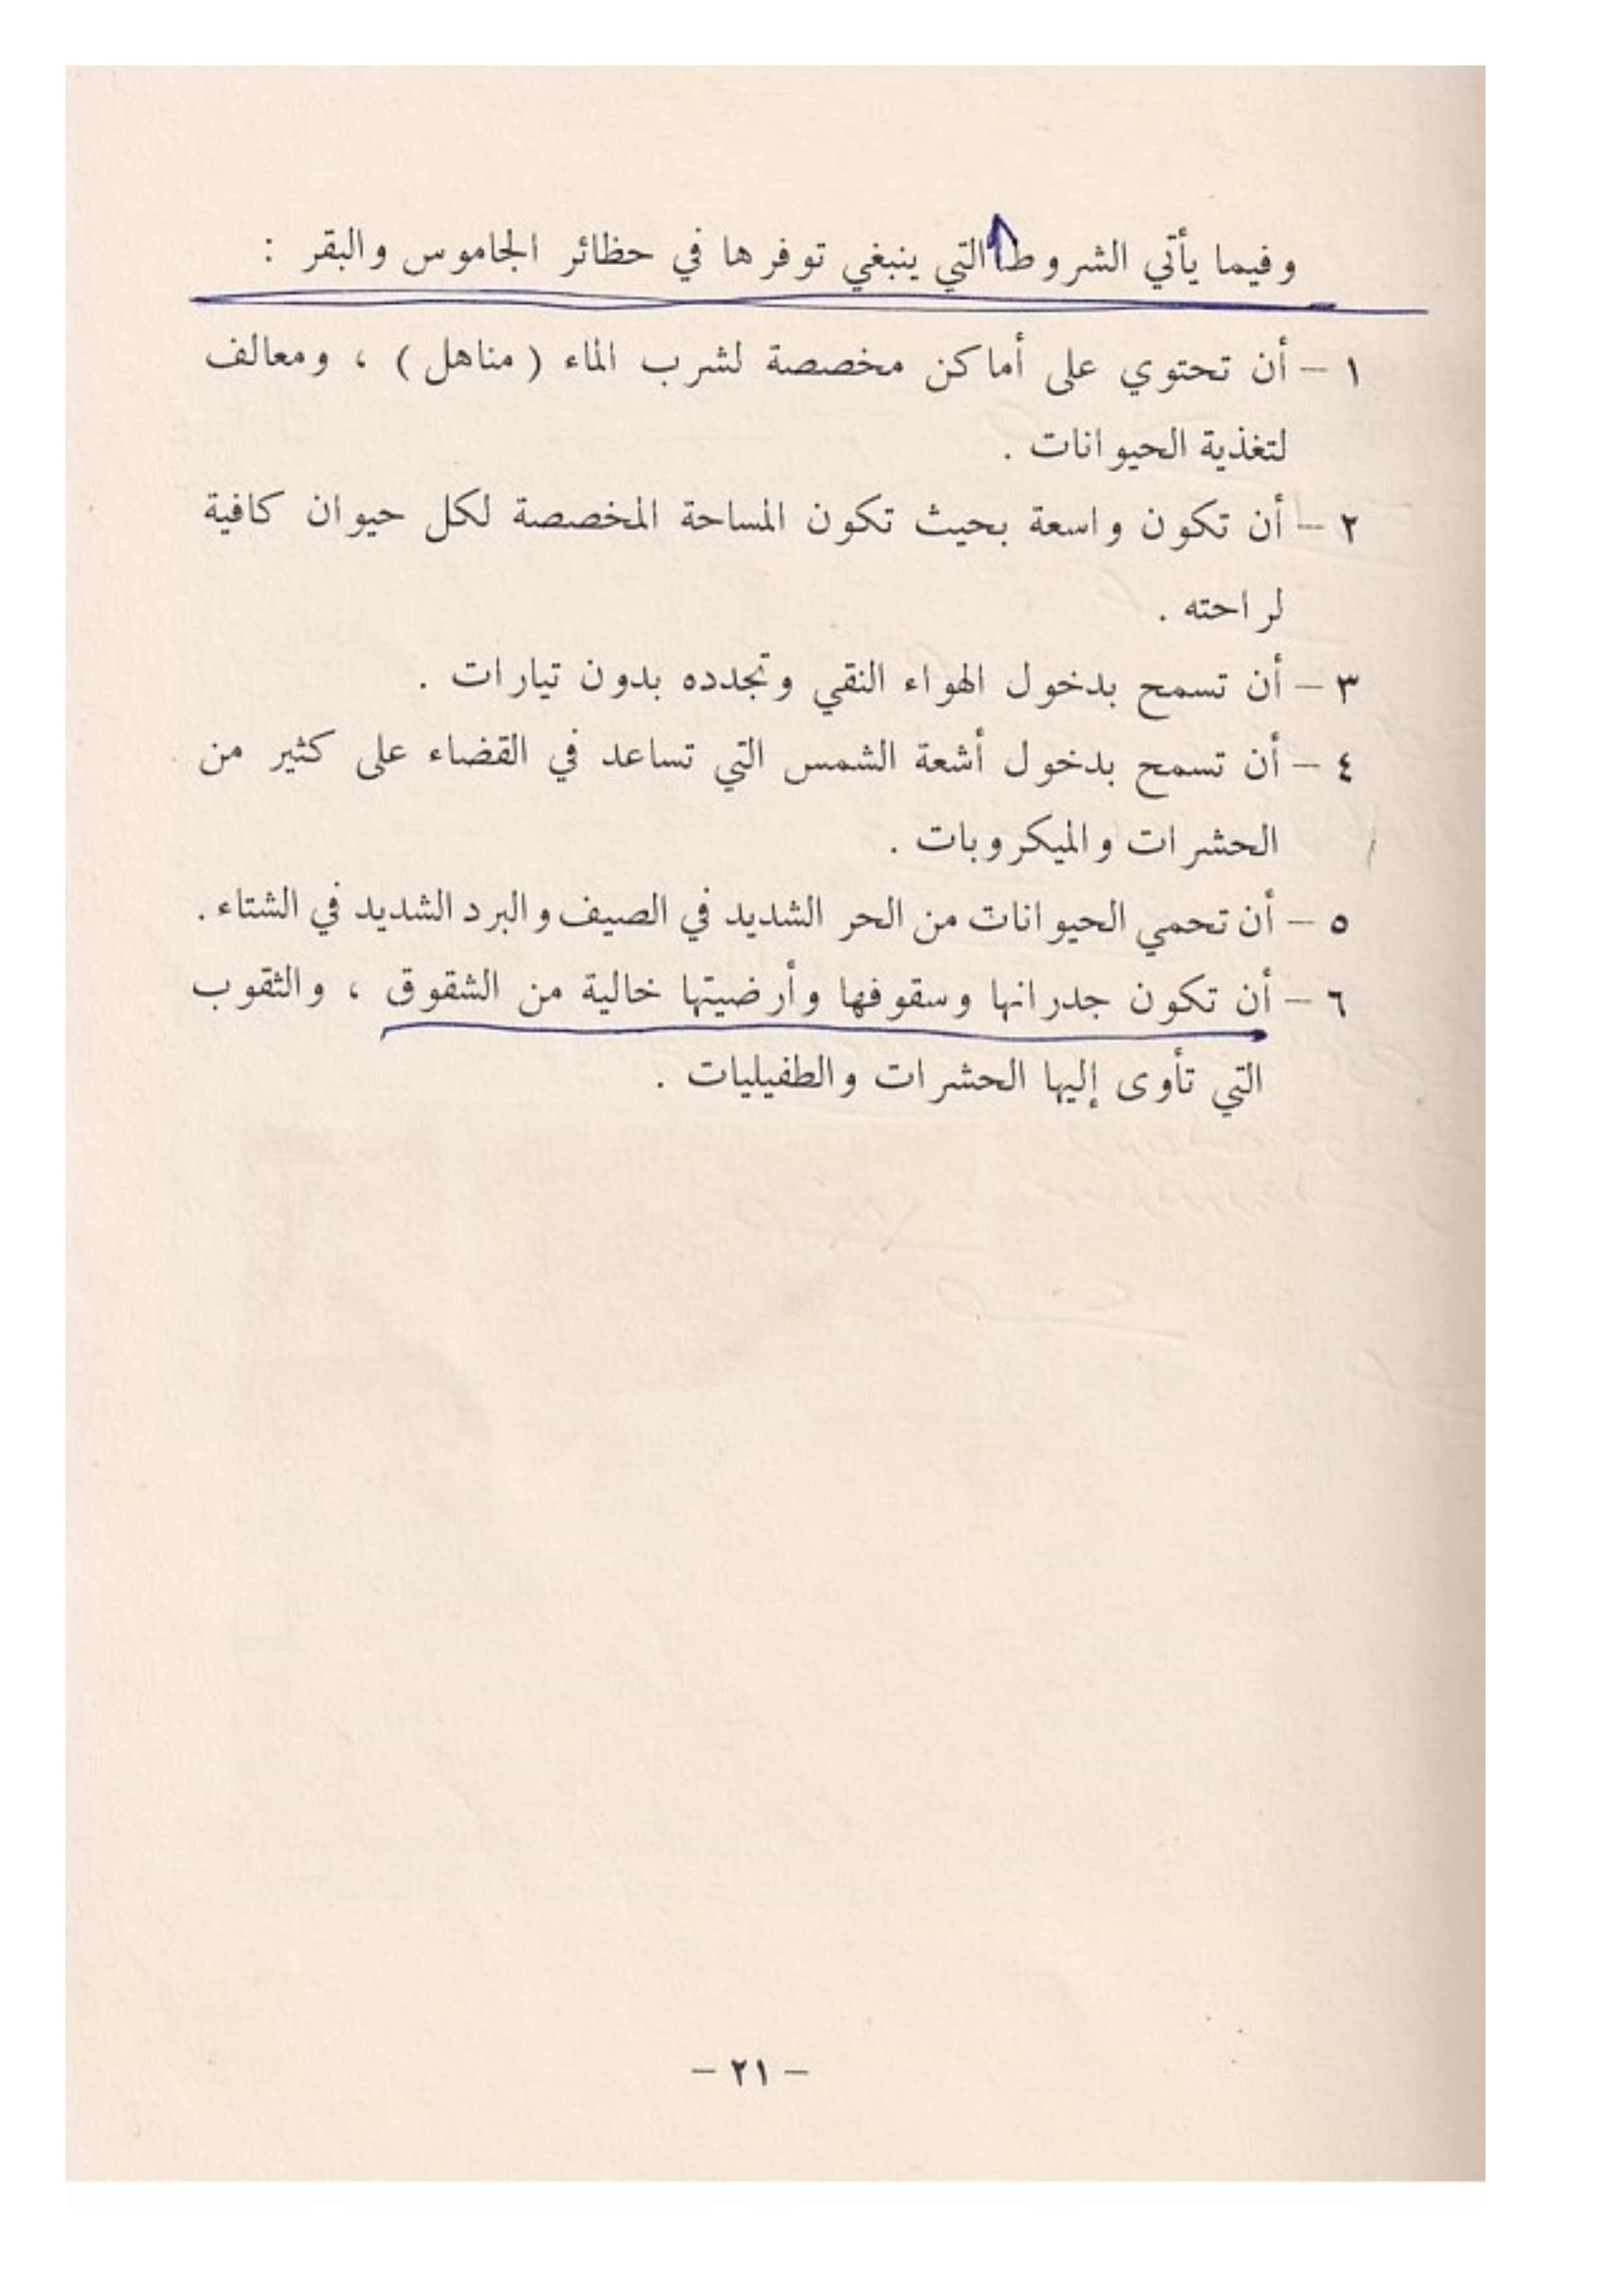 وفيما يأتي الشروط التي ينبغي توفرها في حظائر الجاموس والبقر :
١ – أن تحتوي على أماكن مخصصة لشرب الماء ( مناهل ) ، ومعالف
لتغذية الحيوانات .
٢ – أن تكون واسعة بحيث تكون المساحة المخصصة لكل حيوان كافية
لراحته .
٣ – أن تسمح بدخول الهواء النقي وتجدده بدون تيارات .
٤ – أن تسمح بدخول أشعة الشمس التي تساعد في القضاء على كثير من
الحشرات والميكروبات .
٥ – أن تحمي الحيوانات من الحر الشديد في الصيف والبرد الشديد في الشتاء .
٦ – أن تكون جدرانها وسقوفها وأرضيتها خالية من الشقوق ، والثقوب
التي تأوى إليها الحشرات والطفيليات .
– ٢١ –